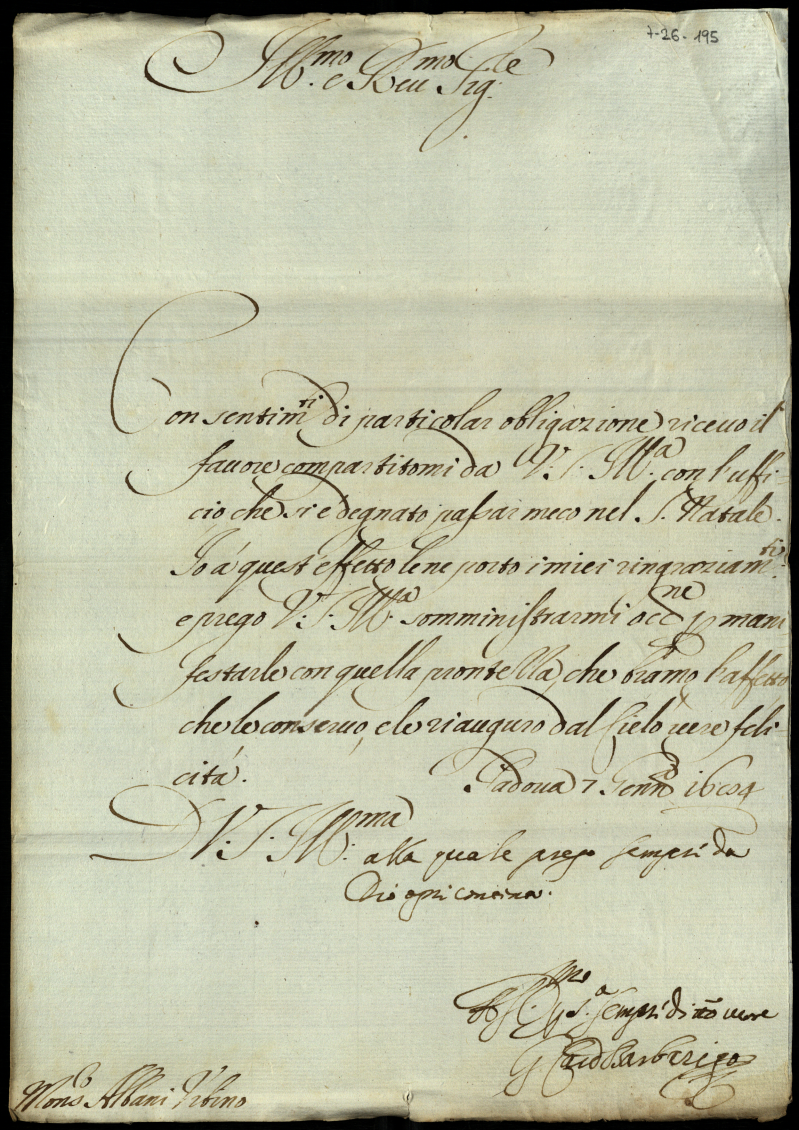 7-26-195
Ill.mo e Reu.mo Sig.re
Con sentim.ti di particolar obligazione riceuo il
fauore compartitomi da V. S. Ill.ma con l'uffi-
cio che si è degnato passar meco nel S. Natale.
Io à quest'effetto le ne porto i miei ringraziam.ti
e prego V. S. Ill.ma somministrarmi occ.ne p mani
festarle con quella prontezza, che bramo l'affetto
che le conseruo, e le riauguro dal Cielo vere feli-
cità. Padoua 7 Genn.o 1694
D V. S. Ill.ma
alla quale prego sempre da
Dio ogni
sempre di uero
G Card Barbarigo
Mons.r Albani Vrbino